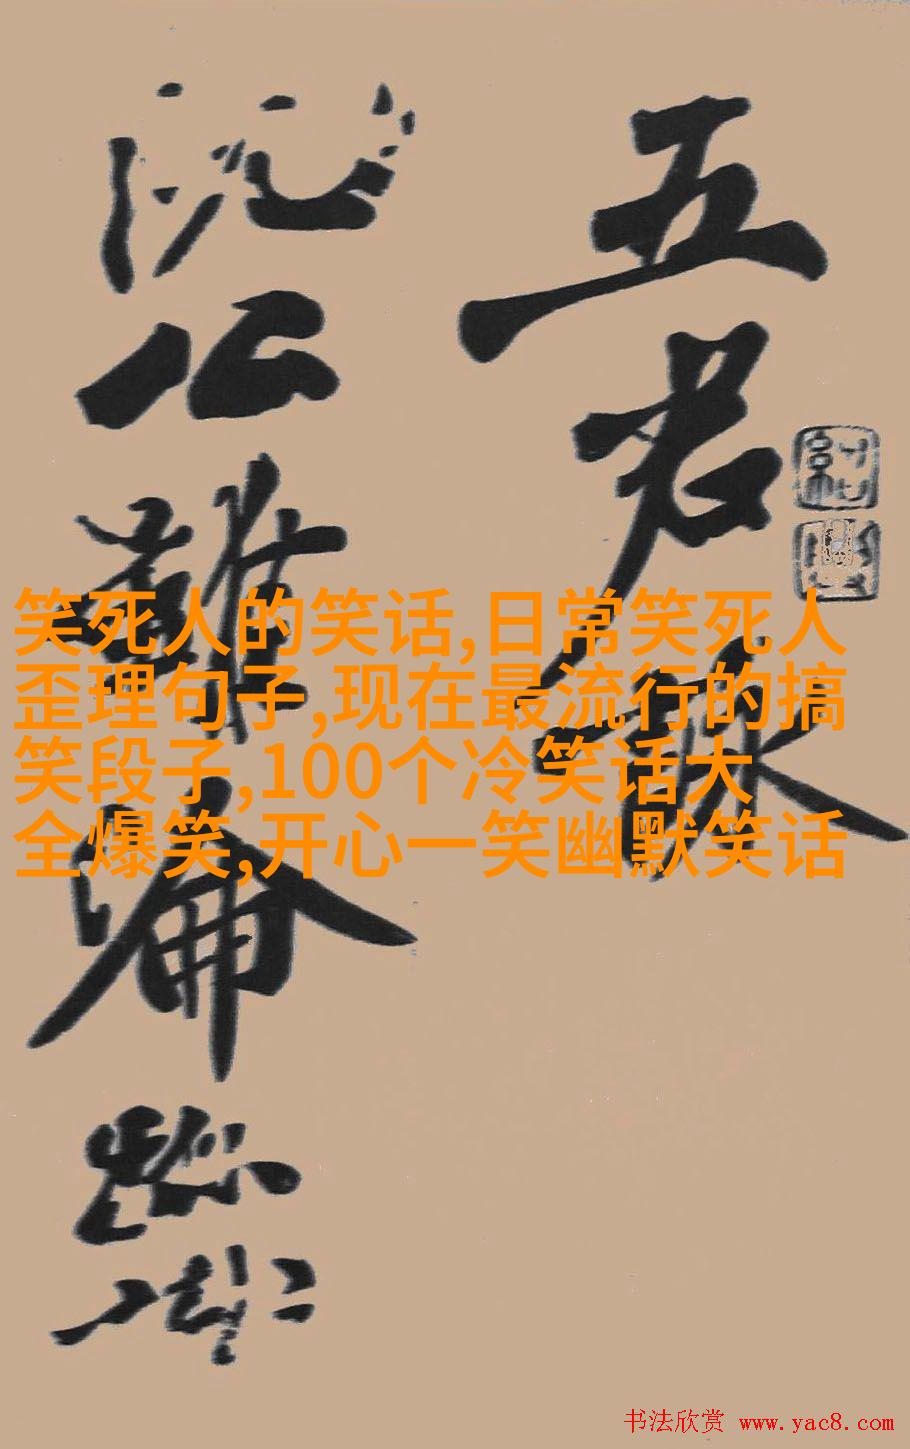 五君詠
阮公雖淪跡
笑死人的笑话,日常笑死人
歪理句子,现在最流行的搞
笑段子,100个冷笑话大
全爆笑,开心一笑幽默笑话
书法欣赏 www.yac8.com